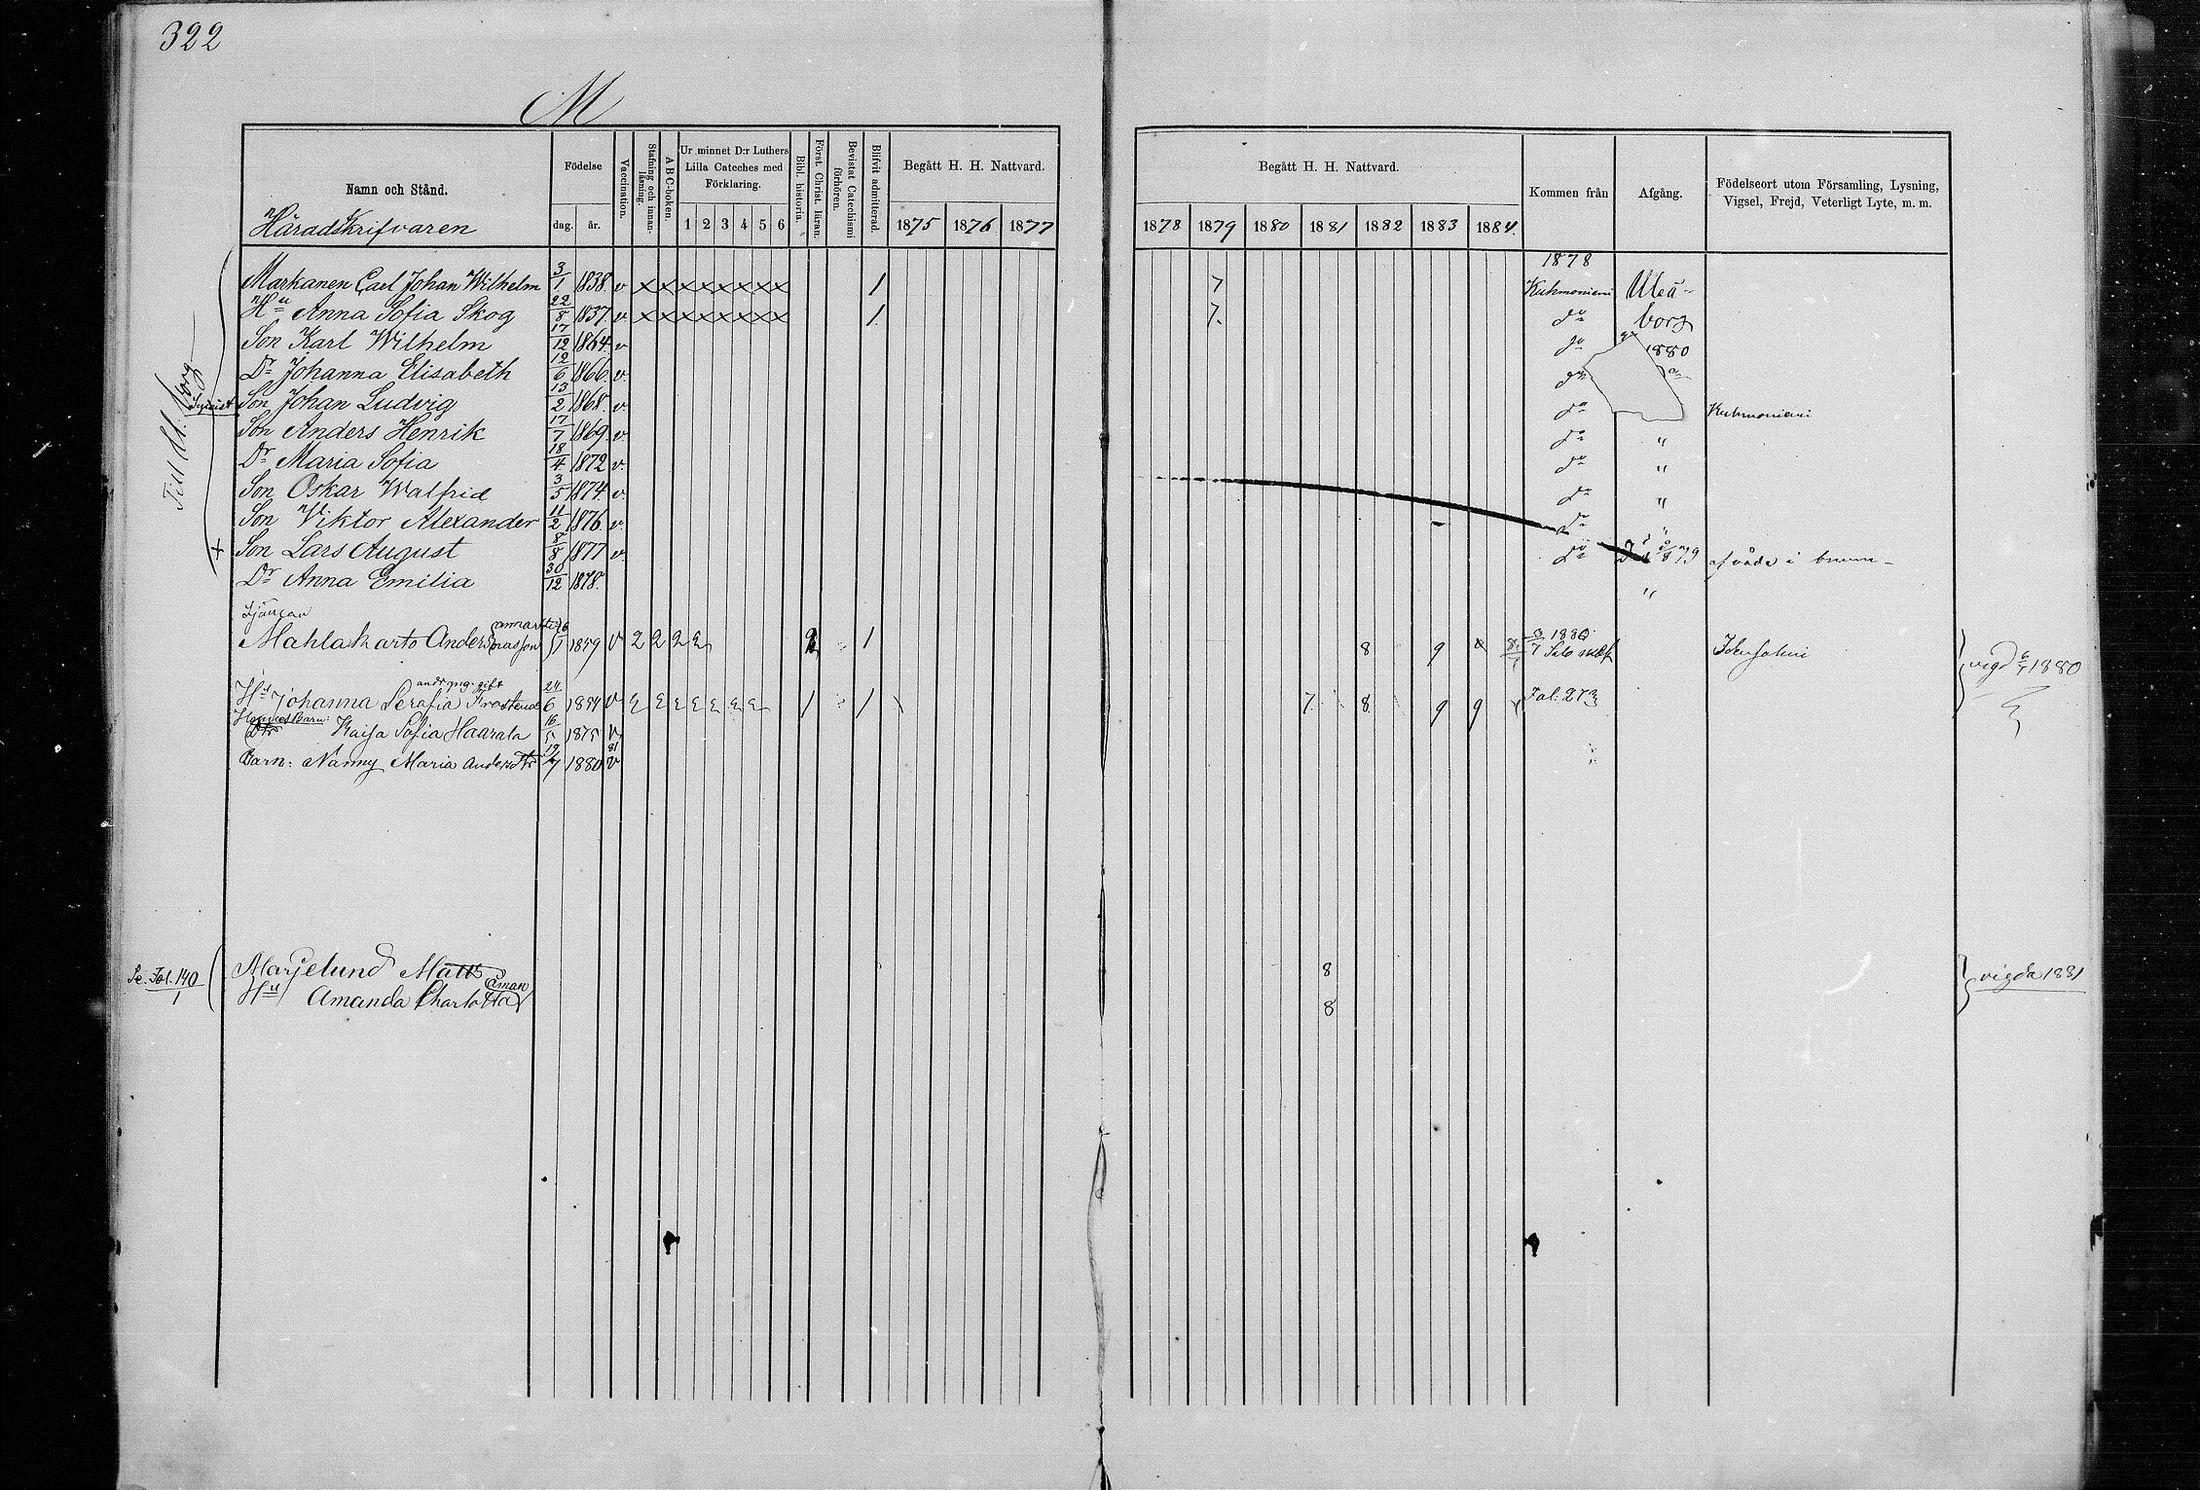 322
M
Namn och Stånd.
Födelse
dag.
år.
Vaccination.
Stafning och innan-läsning.
ABC-boken.
Ur minnet D:r Luthers Lilla Cateches med Förklaring.
1 2 3 4 5 6
Bibl. historia.
Först. Christ. läran.
Bevistat Catechismi förhören.
Blifvit admitterad.
Begått H. H. Nattvard.
1875 1876 1877
Begått H. H. Nattvard.
1878 1879 1880 1881 1882 1883 1884.
Kommen från
Afgång.
Födelseort utom Församling, Lysning, Vigsel, Frejd, Veterligt Lyte, m. m.
Häradskrifvaren
1878
Markanen Carl Johan Wilhelm 3/1 1838. v x x x x x x x x 1 7 Kuhmoniemi Uleå-
Hu Anna Sofia Skog 22/8 1837 v. x x x x x x x x 1. 7. do borg
Son Karl Wilhelm 17/12 1864. v do 1880
Dr Johanna Elisabeth 12/6 1866. v. do
Son Johan Ludvig 13/2 1868. v. do Kuhmoniemi
Son Anders Henrik 17/7 1869. v. do "
Dr Maria Sofia 18/4 1872 v. do "
Son Oskar Walfrid 3/5 1874. v. do "
Son Viktor Alexander 11/2 1876. v. do "
+ Son Lars August 8/8 1877 v. do 79 af våda i brunn
Dr Anna Emilia 30/12 1878. "
Mahlakarto Anders 1859 v 2 2 2 2 1 8 9 1880 Salo
Hu Johanna Serafia 24/6 1854 v 1 1 7 8 9 9 Fol: 273
vigd 1880
Kaisa Sofia Haarala 16/5 1875 v
Barn: Nanny Maria Andersdtr 19/7 1880 v 81
Se Fol. 140
Marjelund Matts 8
Hu Amanda Charlotta 8
vigda 1881